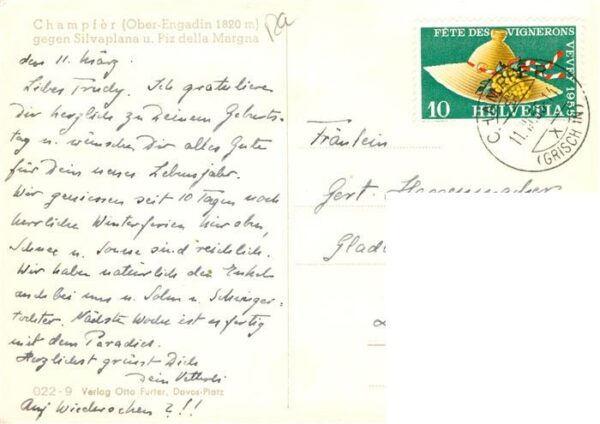 Champfèr (Ober-Engadin 1820 m)
gegen Silvaplana u. Piz della Margna
den 11. März.
Liebes Trudy. Ich gratuliere
Dir herzlich zu Deinem Geburts-
tag u. wünsche Dir alles Gute
für Dein neues Lebensjahr.
Wir geniessen seit 10 Tagen noch
herrliche Winterferien hier oben,
Schnee u. Sonne sind reichlich.
Wir haben natürlich die Enkel
auch bei uns u. Sohn u. Schwieger-
tochter. Nächste Woche ist es fertig
mit dem Paradies.
Herzlichst grüsst Dich
Dein
022-9 Verlag Otto Furter, Davos-Platz
Auf Wiedersehen ?!!
FÊTE DES VIGNERONS
VEVEY 1955
10 HELVETIA
CHAMPFÈR
(GRISCHUN)
Fräulein
Gert.